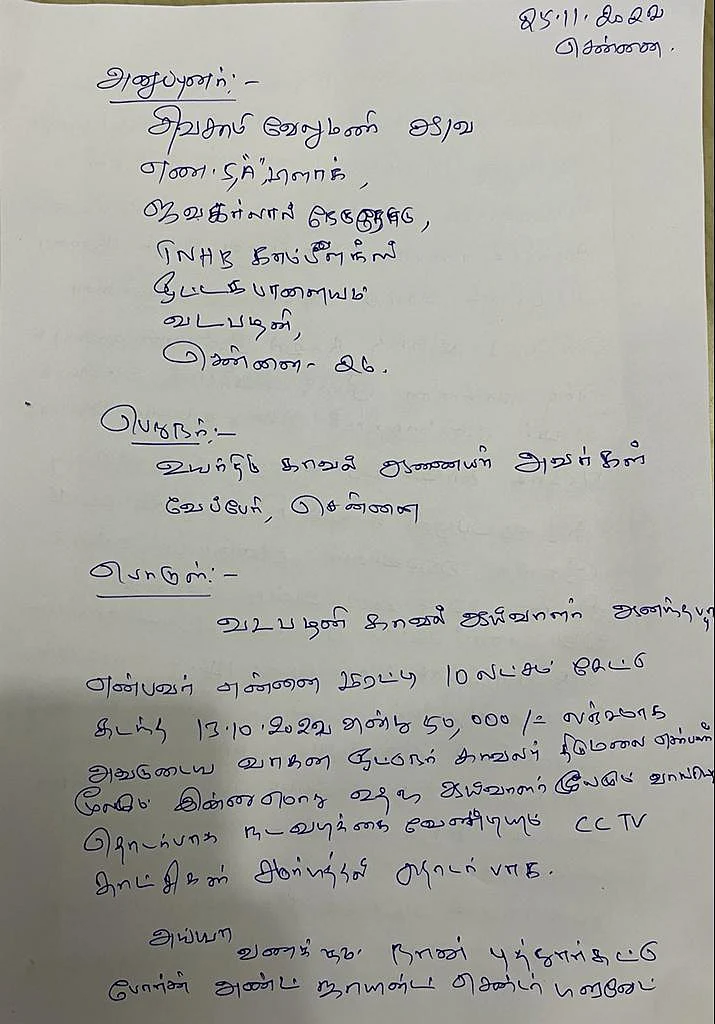 25.11.2022
சென்னை.
அனுப்புனர்:-
சிவசாமி வேலுமணி
எண். 5, "A", பிளாக்,
ஜவகர்லால் நேரு
TNHB காம்ப்ளக்ஸ்
வடபழனி,
சென்னை- 26.
பெறுநர்:-
உயர்திரு காவல் ஆணையர் அவர்கள்
வேப்பேரி, சென்னை
பொருள்:-
வடபழனி காவல் ஆய்வாளர்
என்பவர் என்னை மிரட்டி 10 லட்சம் கேட்டு
கடந்த 13.10.2022 அன்று 50,000/- லஞ்சமாக
அவருடைய வாகன ஓட்டுநர் காவலர் திருமலை என்பவர்
மூலமும் இன்னுமொரு ஆய்வாளர் மூலமும்
தொடர்பாக நடவடிக்கை வேண்டியும் CCTV
காட்சிகள் சமர்பித்தல் தொடர்பாக.
அய்யா
வணக்கம். நான் புத்தூர்கட்டு
போன்ஸ் அண்ட் ஜாயண்ட் சென்டர் பிரைவேட்